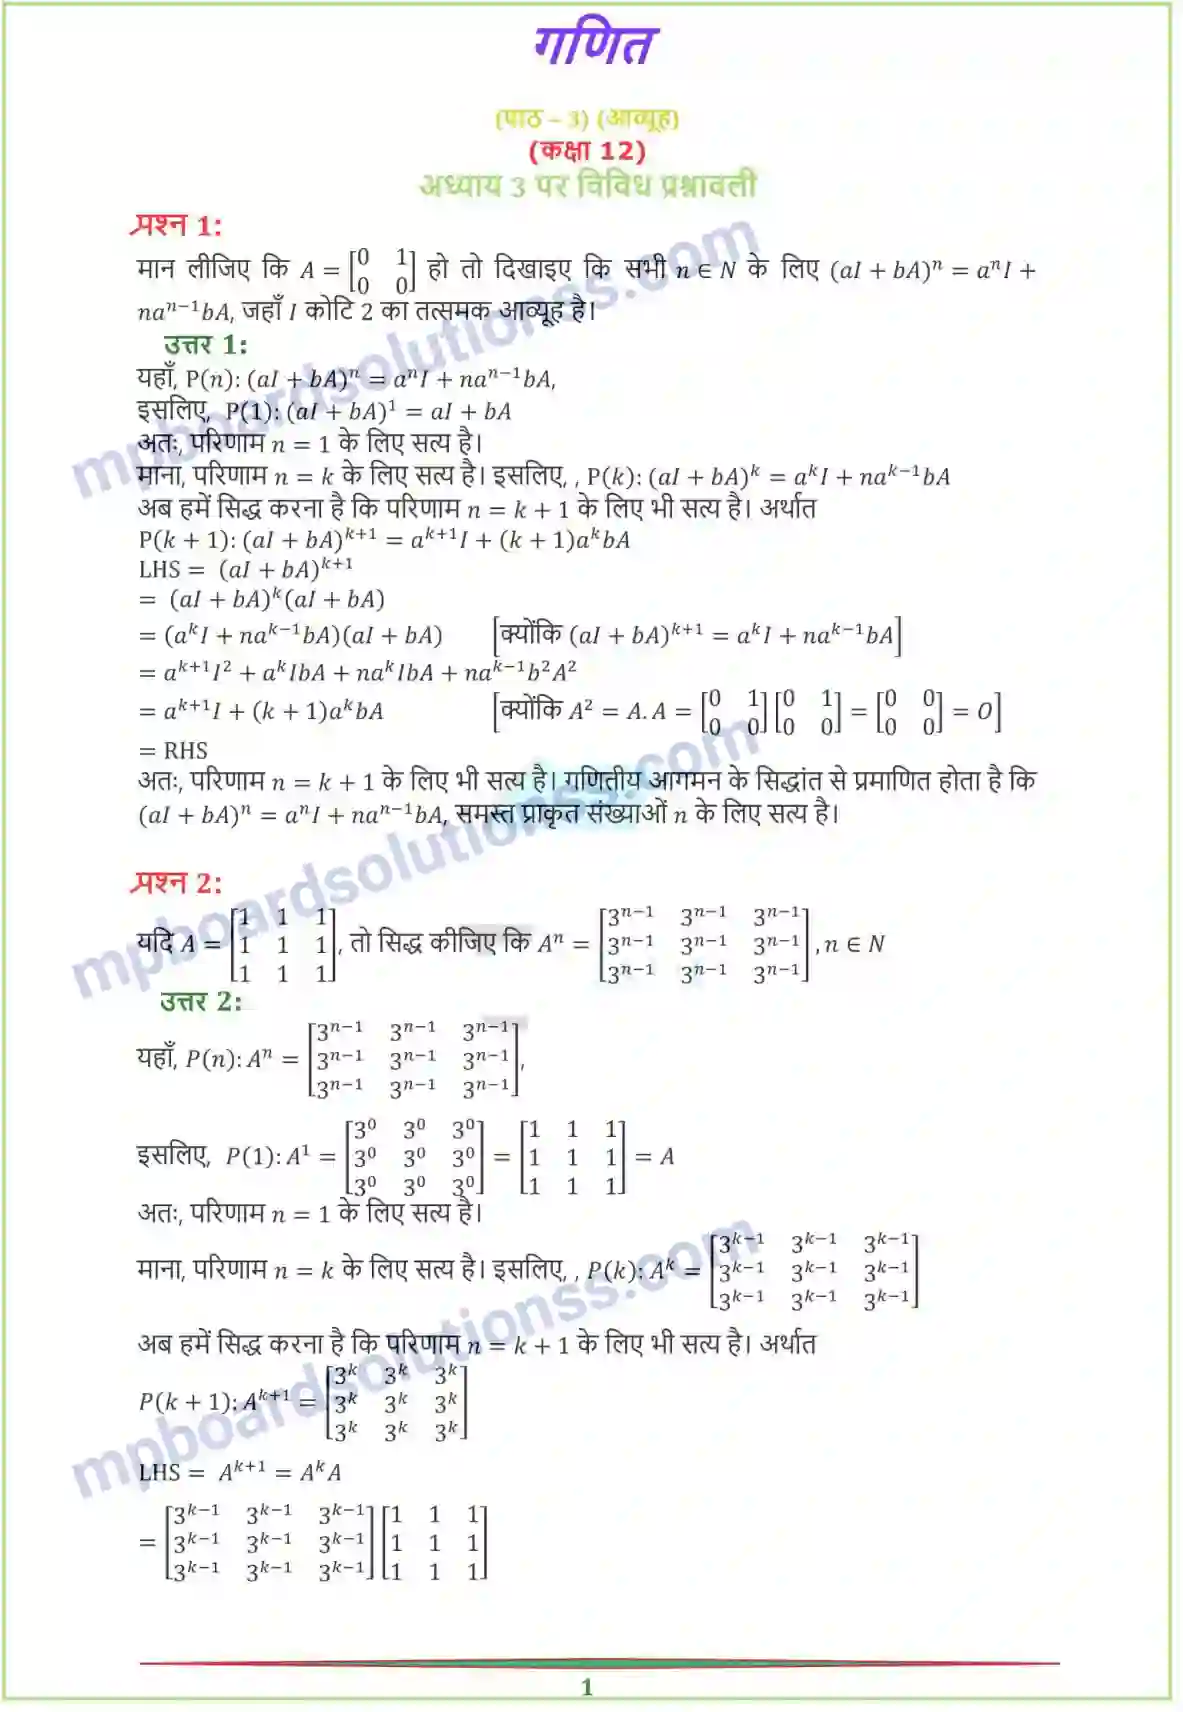 गणित
(पाठ – 3) (आव्यूह)
(कक्षा 12)
अध्याय 3 पर विविध प्रश्नावली
प्रश्न 1:
मान लीजिए कि A = [0 1; 0 0] हो तो दिखाइए कि सभी n ∈ N के लिए (aI + bA)ⁿ = aⁿI +
naⁿ⁻¹bA, जहाँ I कोटि 2 का तत्समक आव्यूह है।
उत्तर 1:
यहाँ, P(n): (aI + bA)ⁿ = aⁿI + naⁿ⁻¹bA,
इसलिए, P(1): (aI + bA)¹ = aI + bA
अतः, परिणाम n = 1 के लिए सत्य है।
माना, परिणाम n = k के लिए सत्य है। इसलिए, , P(k): (aI + bA)ᵏ = aᵏI + naᵏ⁻¹bA
अब हमें सिद्ध करना है कि परिणाम n = k + 1 के लिए भी सत्य है। अर्थात
P(k + 1): (aI + bA)ᵏ⁺¹ = aᵏ⁺¹I + (k + 1)aᵏbA
LHS = (aI + bA)ᵏ⁺¹
= (aI + bA)ᵏ(aI + bA)
= (aᵏI + naᵏ⁻¹bA)(aI + bA) [क्योंकि (aI + bA)ᵏ⁺¹ = aᵏI + naᵏ⁻¹bA]
= aᵏ⁺¹I² + aᵏIbA + naᵏIbA + naᵏ⁻¹b²A²
= aᵏ⁺¹I + (k + 1)aᵏbA [क्योंकि A² = A. A = [0 1; 0 0] [0 1; 0 0] = [0 0; 0 0] = O]
= RHS
अतः, परिणाम n = k + 1 के लिए भी सत्य है। गणितीय आगमन के सिद्धांत से प्रमाणित होता है कि
(aI + bA)ⁿ = aⁿI + naⁿ⁻¹bA, समस्त प्राकृत संख्याओं n के लिए सत्य है।
प्रश्न 2:
यदि A = [1 1 1; 1 1 1; 1 1 1], तो सिद्ध कीजिए कि Aⁿ = [3ⁿ⁻¹ 3ⁿ⁻¹ 3ⁿ⁻¹; 3ⁿ⁻¹ 3ⁿ⁻¹ 3ⁿ⁻¹; 3ⁿ⁻¹ 3ⁿ⁻¹ 3ⁿ⁻¹], n ∈ N
उत्तर 2:
यहाँ, P(n): Aⁿ = [3ⁿ⁻¹ 3ⁿ⁻¹ 3ⁿ⁻¹; 3ⁿ⁻¹ 3ⁿ⁻¹ 3ⁿ⁻¹; 3ⁿ⁻¹ 3ⁿ⁻¹ 3ⁿ⁻¹],
इसलिए, P(1): A¹ = [3⁰ 3⁰ 3⁰; 3⁰ 3⁰ 3⁰; 3⁰ 3⁰ 3⁰] = [1 1 1; 1 1 1; 1 1 1] = A
अतः, परिणाम n = 1 के लिए सत्य है।
माना, परिणाम n = k के लिए सत्य है। इसलिए, , P(k): Aᵏ = [3ᵏ⁻¹ 3ᵏ⁻¹ 3ᵏ⁻¹; 3ᵏ⁻¹ 3ᵏ⁻¹ 3ᵏ⁻¹; 3ᵏ⁻¹ 3ᵏ⁻¹ 3ᵏ⁻¹]
अब हमें सिद्ध करना है कि परिणाम n = k + 1 के लिए भी सत्य है। अर्थात
P(k + 1): Aᵏ⁺¹ = [3ᵏ 3ᵏ 3ᵏ; 3ᵏ 3ᵏ 3ᵏ; 3ᵏ 3ᵏ 3ᵏ]
LHS = Aᵏ⁺¹ = AᵏA
= [3ᵏ⁻¹ 3ᵏ⁻¹ 3ᵏ⁻¹; 3ᵏ⁻¹ 3ᵏ⁻¹ 3ᵏ⁻¹; 3ᵏ⁻¹ 3ᵏ⁻¹ 3ᵏ⁻¹] [1 1 1; 1 1 1; 1 1 1]
1
mpboardsolutionss.com
mpboardsolutionss.com
mpboardsolutionss.com